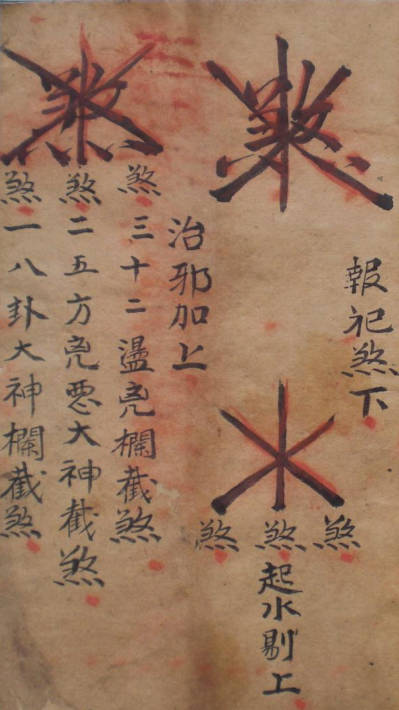 煞
報祀煞下
煞 煞 煞
起水剔上
煞
治邪加上
煞三十二盪兇欄截煞
煞二五方兇悪大神截煞
煞一八卦大神欄截煞